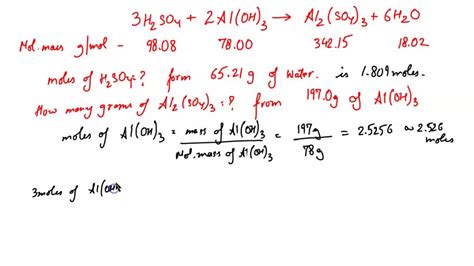 3H₂SO₄ + 2Al(OH)₃ → Al₂(SO₄)₃ + 6H₂O
Mol. mass g/mol – 98.08 78.00 342.15 18.02
moles of H₂SO₄=? form 65.21 g of Water. is 1.809 moles.
How many grams of Al₂(SO₄)₃=? from 197.0g of Al(OH)₃
moles of Al(OH)₃ = mass of Al(OH)₃ / Mol. mass of Al(OH)₃ = 197g / 78g = 2.5256 ≈ 2.526 moles
3moles of Al(OH)